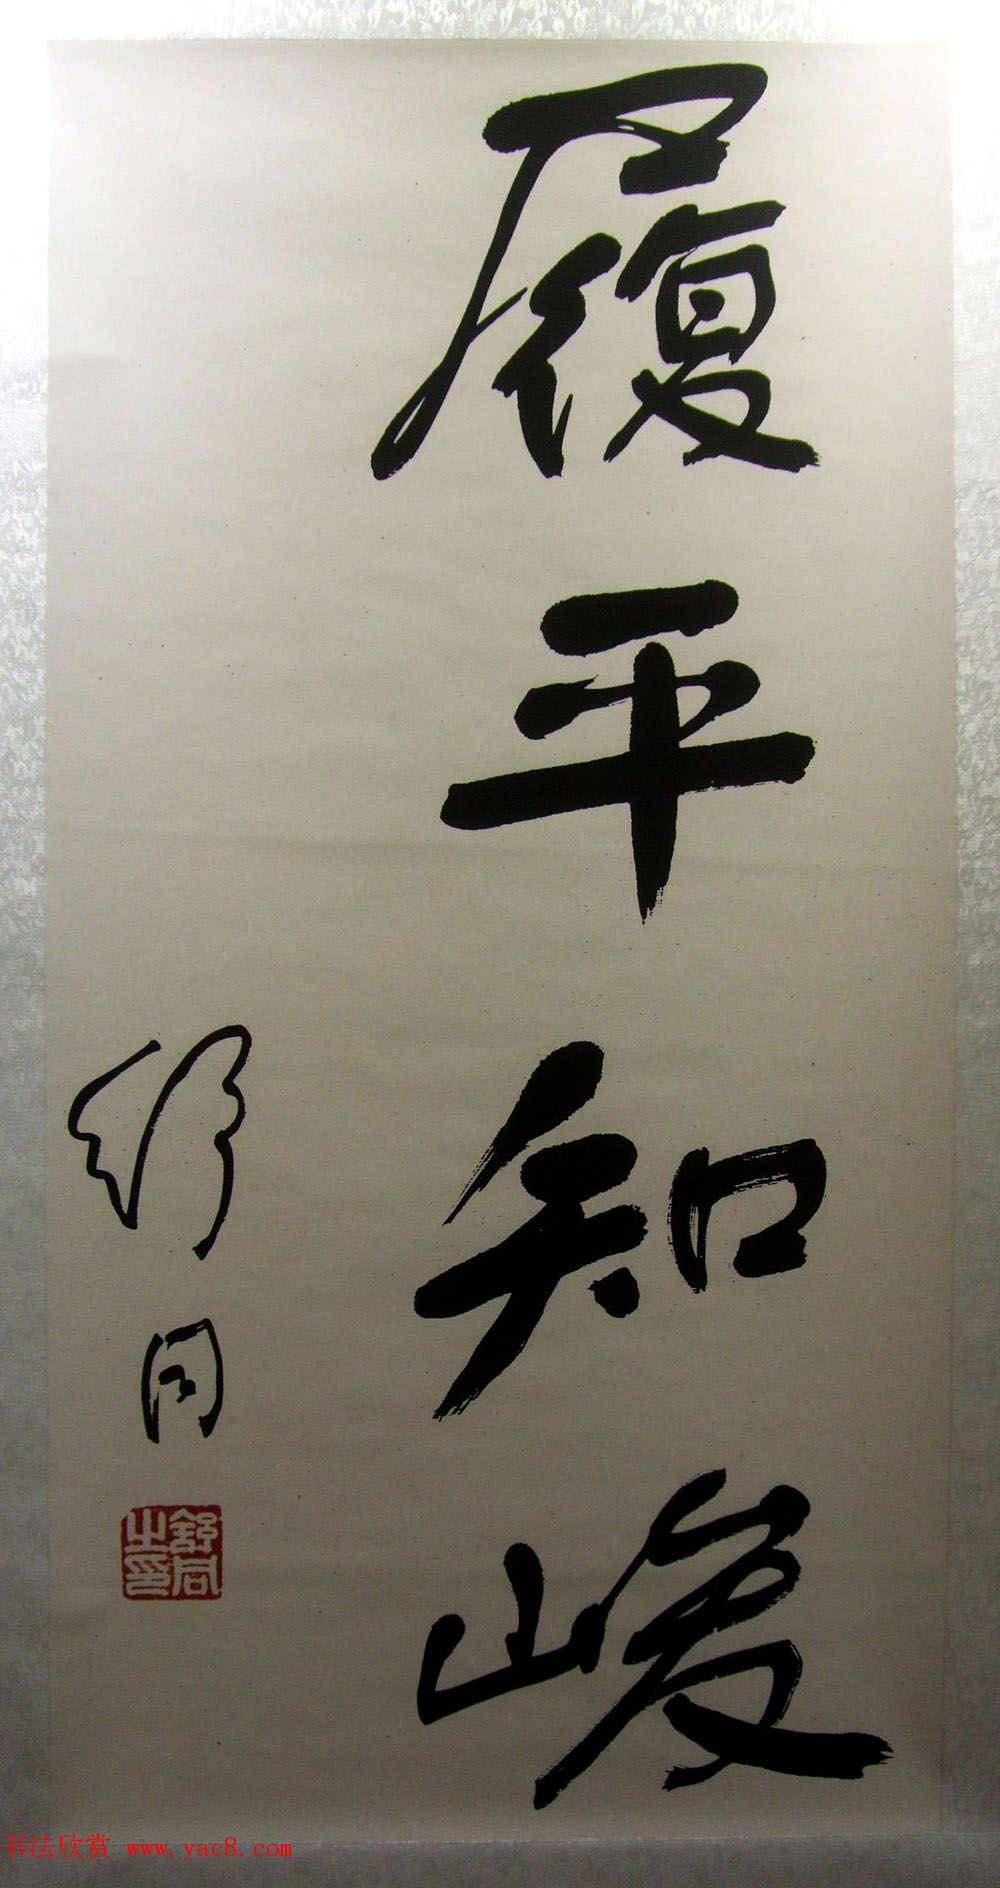 履平知峻
舒同
舒同之印
书法欣赏 www.yac8.com